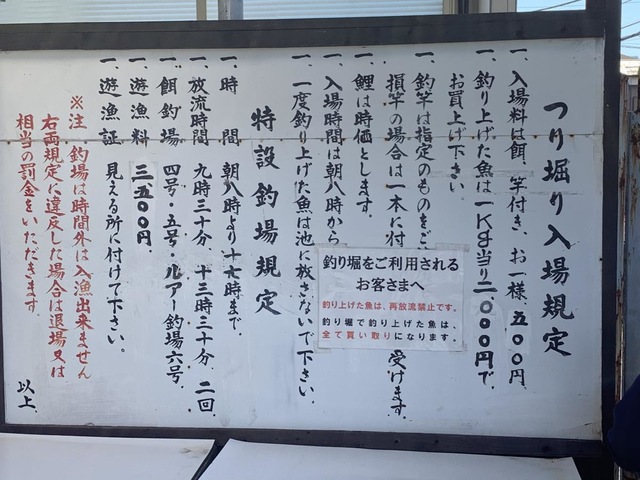 つり堀り入場規定
一、入場料は餌、竿付き、お一様、五〇〇円、
一、釣り上げた魚は一Kg当り二、〇〇〇円で、
お買上げ下さい。
一、釣竿は指定のものをご
損竿の場合は一本に付 受けます。
一、鯉は時価とします。
一、入場時間は朝八時から
一、一度釣り上げた魚は池に放さないで下さい。
釣り堀をご利用される
お客さまへ
釣り上げた魚は、再放流禁止です。
釣り堀で釣り上げた魚は、
全て買い取りになります。
特設釣場規定
一、時間 朝八時より十七時まで。
一、放流時間 九時三十分、十三時三十分、二回
一、餌釣場 四号・五号・ルアー釣場六号、
一、遊漁料 三五〇〇円、
一、遊漁証 見える所に付けて下さい。
※注 釣場は時間外は入漁出来ません
右両規定に違反した場合は退場又は
相当の罰金をいただきます。
以上、